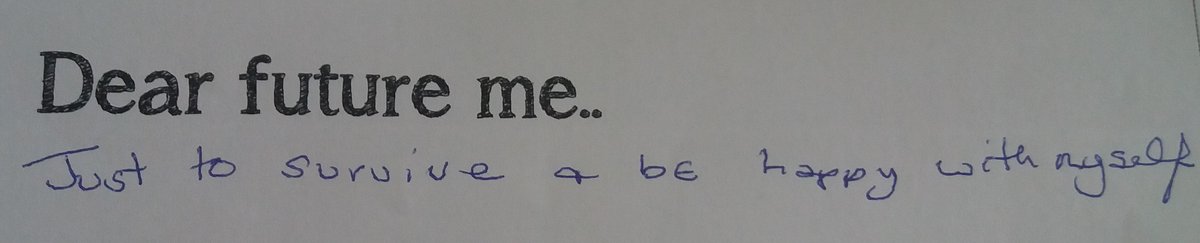 Dear future me..
Just to survive & be happy with myself